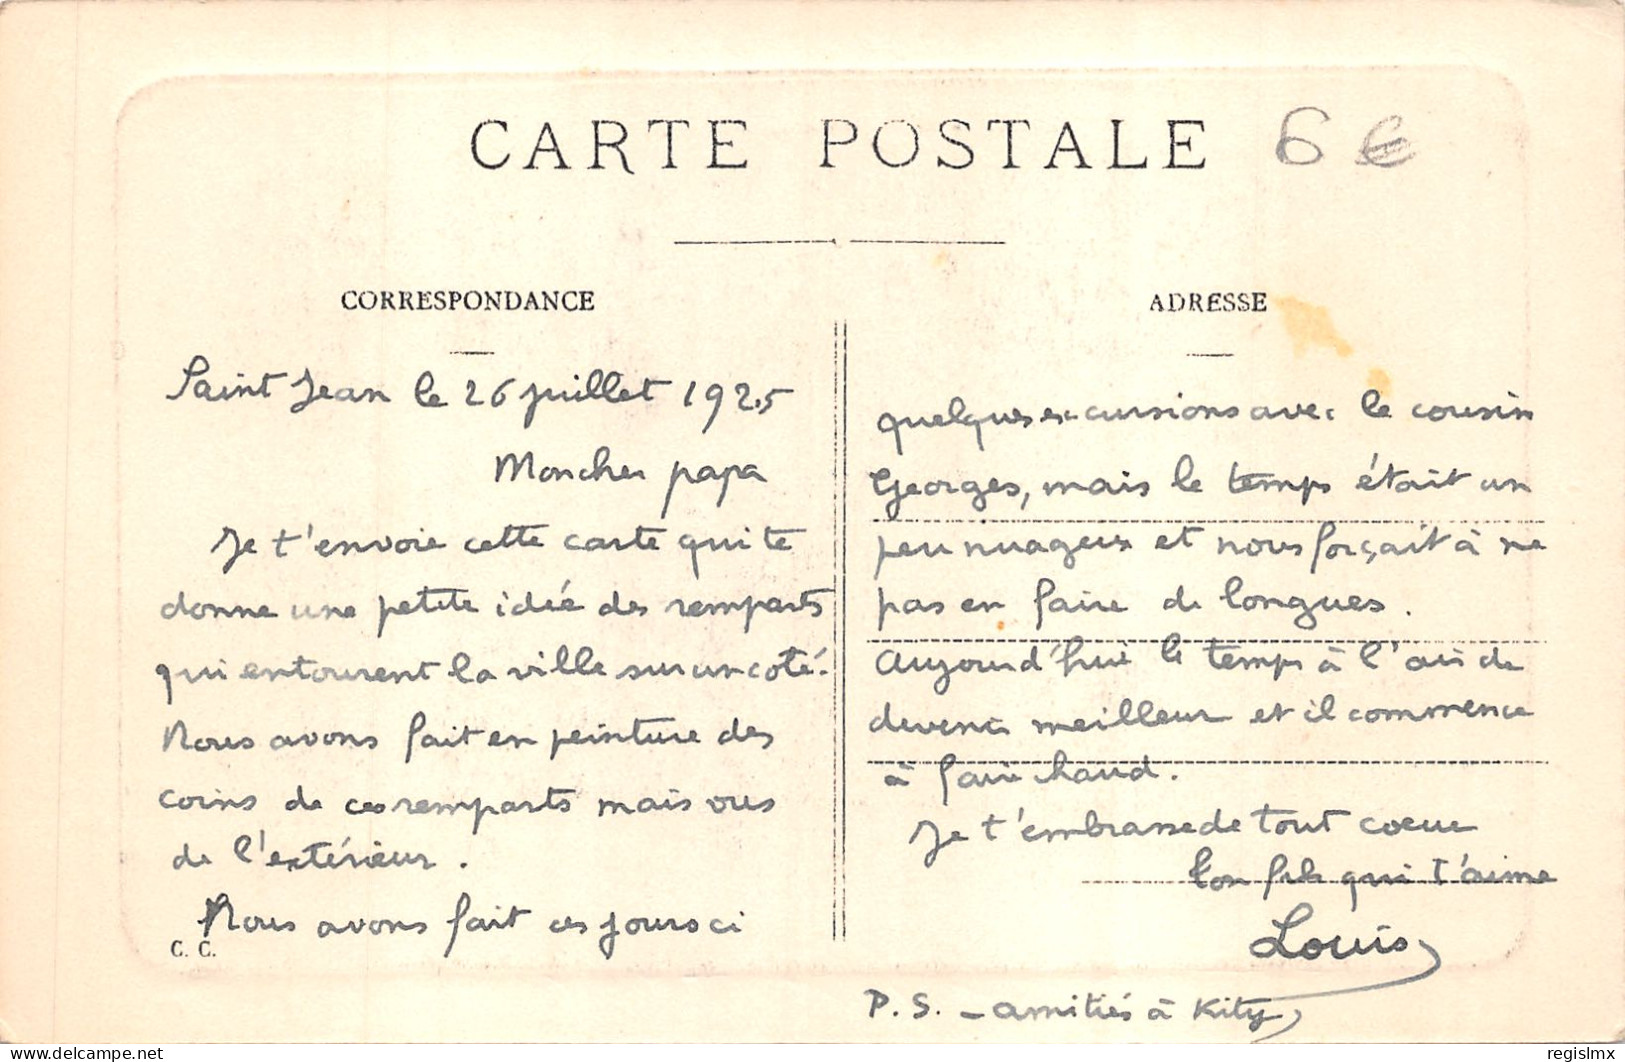 CARTE POSTALE 6 €
CORRESPONDANCE
Saint Jean le 26 juillet 1925
Mon cher papa
Je t'envoie cette carte qui te
donne une petite idée des remparts
qui entourent la ville sur un coté.
Nous avons fait en peinture des
coins de ces remparts mais vus
de l'extérieur.
Nous avons fait ces jours ci
C. C.
ADRESSE
quelques excursions avec le cousin
Georges, mais le temps était un
peu nuageux et nous forçait à ne
pas en faire de longues.
Aujourd'hui le temps à l'air de
devenir meilleur et il commence
à faire chaud.
Je t'embrasse de tout coeur
ton fils qui t'aime
Louis
P. S. - amitiés à Kity
delcampe.net
regislmx